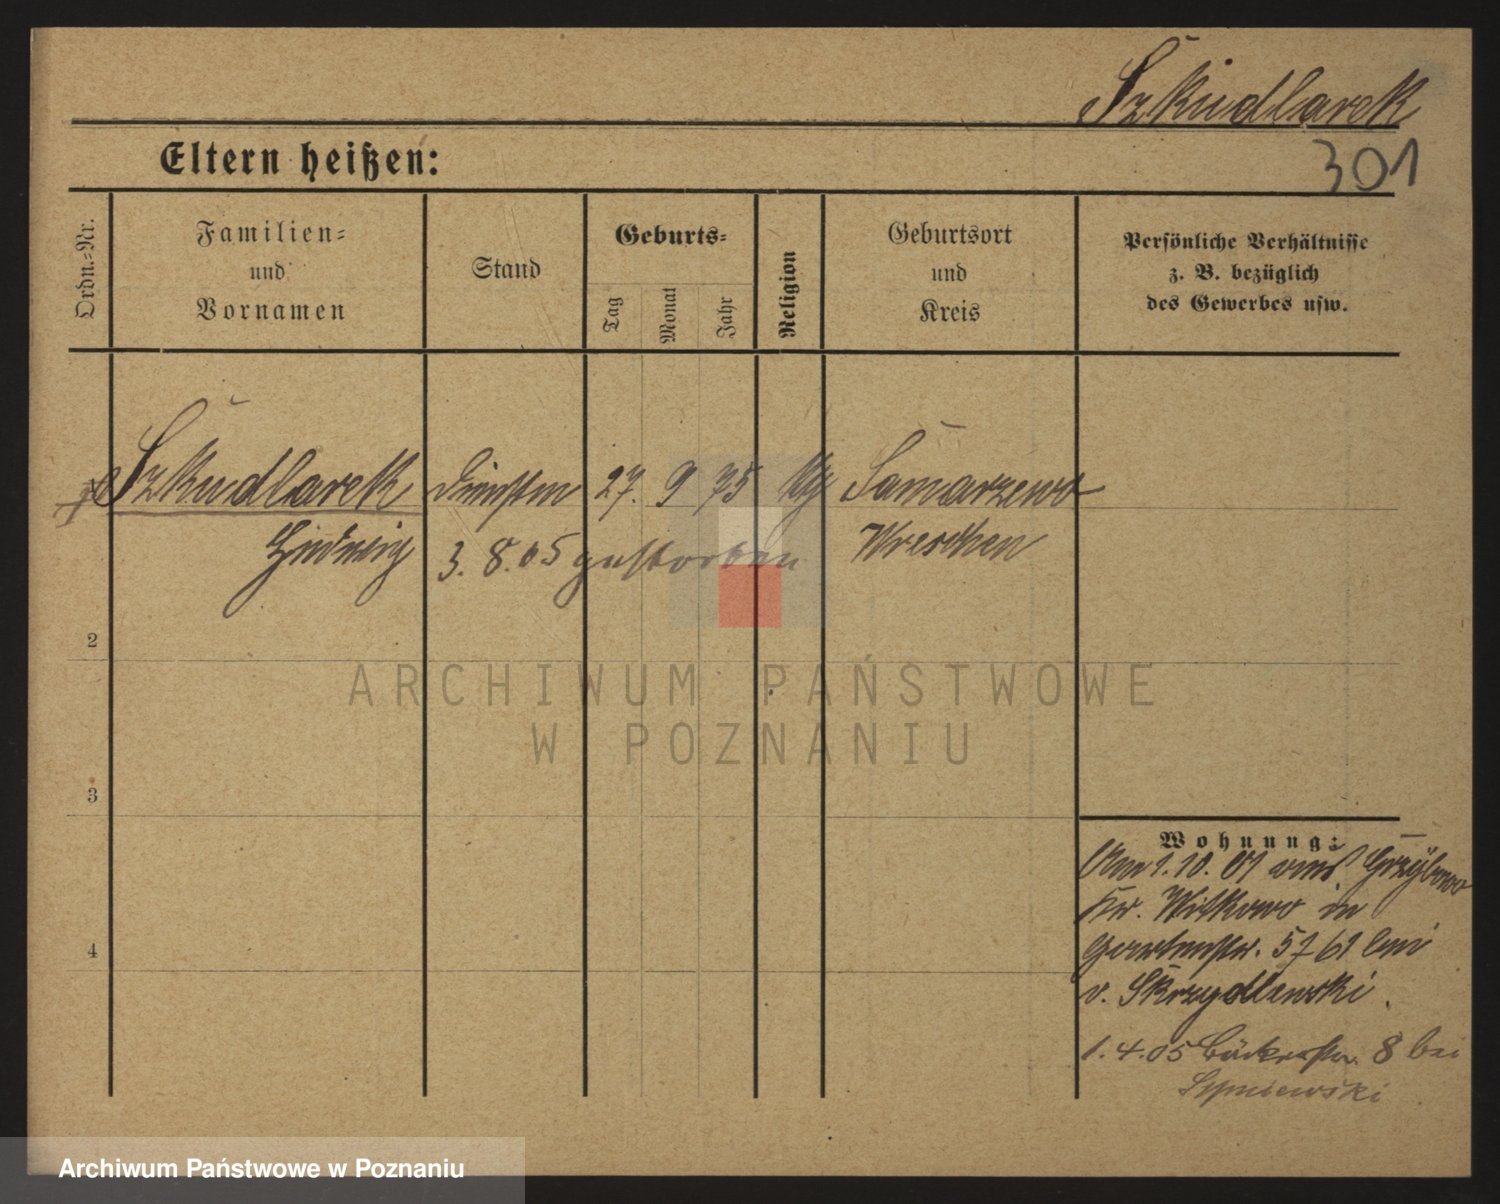 Szkudlarek
301
Eltern heißen:
Ordn.-Nr.
Familien-
und
Vornamen
Stand
Geburts-
Tag
Monat
Jahr
Religion
Geburtsort
und
Kreis
Persönliche Verhältnisse
z. B. bezüglich
des Gewerbes usw.
Szkudlarek 27. 9 75 Samarzewo
Hedwig 3. 8. 05 gestorben Wreschen
2
3
4
Wohnung:
Am 1. 10. 01 aus Grzybowo
Kr. Witkowo in
Gartenstr. 57 61 bei
v. Skrzydlewski
1. 4. 05 Bäckerstr. 8 bei
Sypniewski
ARCHIWUM PAŃSTWOWE
W POZNANIU
Archiwum Państwowe w Poznaniu